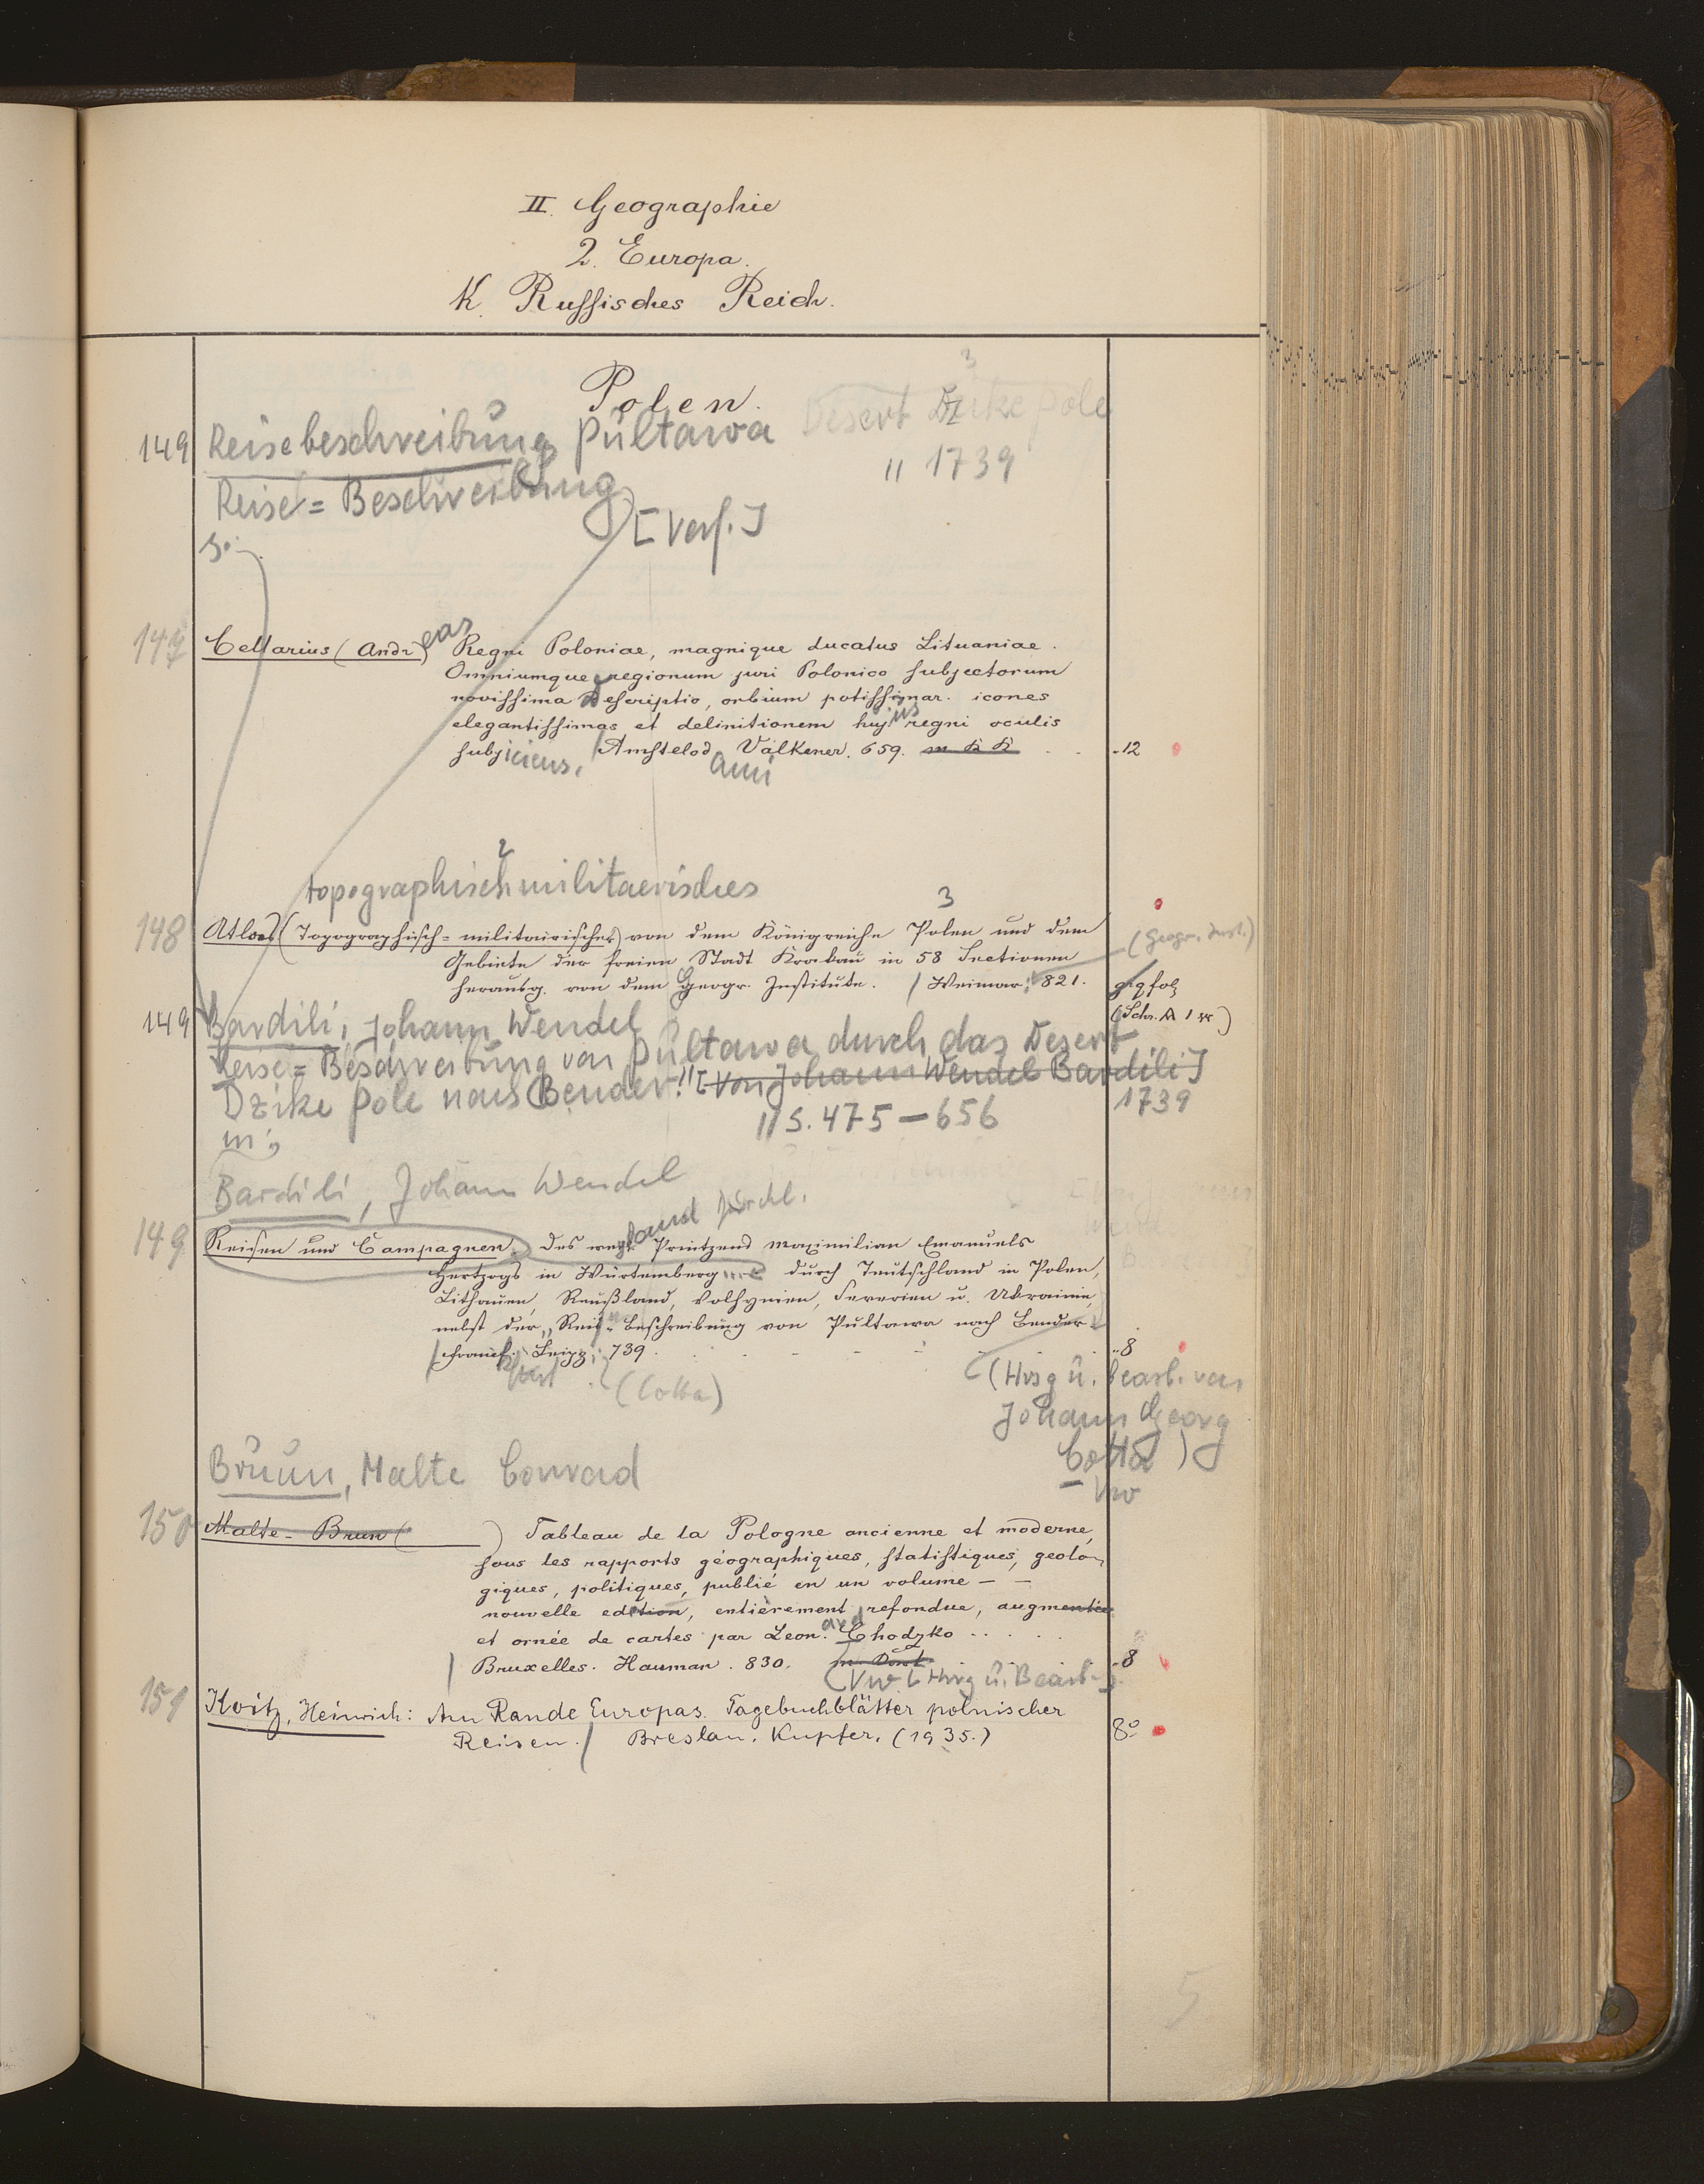 II. Geographie
2. Europa.
K. Russisches Reich.
Polen.
3
149 Reisebeschreibung Pultawa Desert Dzike Pole
" 1739
Reise = Beschreibung
[Verf.]
147 Cellarius (Andreas) Regni Poloniae, magnique ducatus Lituaniae.
Omniumque regionum juri Polonico subjectorum
novissima descriptio, urbium potissimar. icones
elegantissimas et delinitionem hujus regni oculis
subjiciens. / Amstelod. Valkener. 659. -12
2
topographisch militaerisches
3
148 Atlas (Topographisch=militairischer) von dem Königreiche Polen und dem (Geogr. Inst.)
Gebiete der freien Stadt Krakau in 58 Sectionen
herausg. von dem Geogr. Institute. / Weimar. 821. gr qfol
(Schr. A 1 **)
149 Bardili, Johann Wendel
Reise=Beschreibung von Pultawa durch das Desert
Dzike Pole nach Bender." [Von Johann Wendel Bardili]
1739
" S. 475-656
in:
Bardili, Johann Wendel
149 Reisen und Campagnen. Des weyland Printzend Maximilian Emanuels
Hertzogs in Würtemberg ... durch Teutschland in Polen,
Lithauen, Reußland, Volhynien, Severien u. Ukrainie,
nebst der "Reise=Beschreibung von Pultawa nach Bender
/ Franckfurt. Leipz. 739. -8
(Cotta) (Hrsg u. bearb. von
Johann Georg
Cotta)
- Vw
Bruun, Malte Conrad
150 Malte-Brun ( ) Tableau de la Pologne ancienne et moderne,
sous les rapports géographiques, statistiques, geolo-
giques, politiques, publié en un volume — —
nouvelle edition, entièrement refondue, augmentée
et ornée de cartes par Leonard Chodzko . . . .
/ Bruxelles. Hauman. 830. -8
(Vw [Hrsg u. Bearb.])
151 Koitz, Heinrich: Am Rande Europas. Tagebuchblätter polnischer
Reisen. / Breslau. Kupfer. (1935.) 8°
5